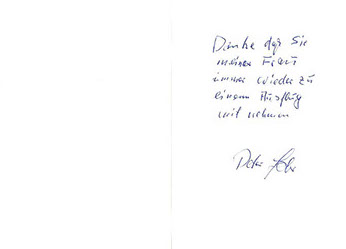 Danke daß Sie
meine Frau
immer wieder zu
einem Ausflug
mit nehmen